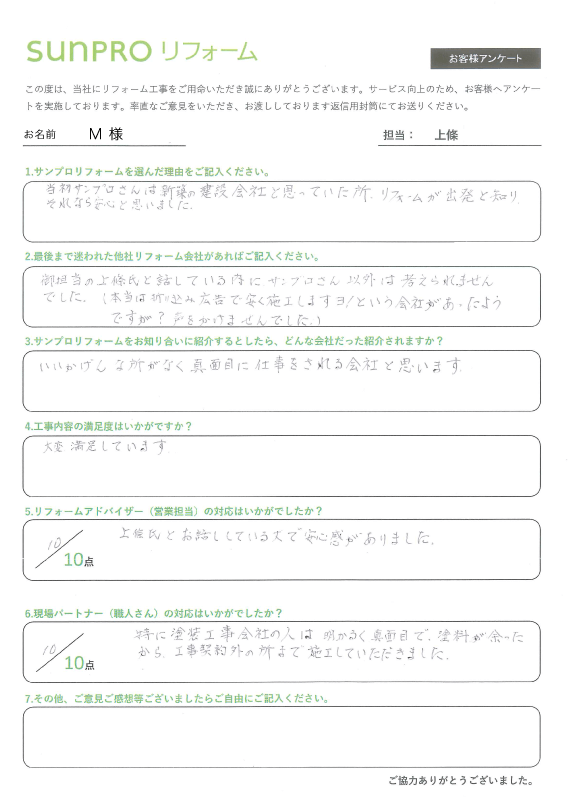 sunpro リフォーム
お客様アンケート
この度は、当社にリフォーム工事をご用命いただき誠にありがとうございます。サービス向上のため、お客様へアンケー
トを実施しております。率直なご意見をいただき、お渡ししております返信用封筒にてお送りください。
お名前 M 様
担当： 上條
1.サンプロリフォームを選んだ理由をご記入ください。
当初サンプロさんは新築の建設会社と思っていた所、リフォームが出発と知り、
それなら安心と思いました。
2.最後まで迷われた他社リフォーム会社があればご記入ください。
御担当の上條氏と話している内にサンプロさん以外は考えられません
でした。(本当は折り込み広告で安く施工しますヨ!という会社があったよう
ですが?声をかけませんでした。)
3.サンプロリフォームをお知り合いに紹介するとしたら、どんな会社だった紹介されますか？
いいかげんな所がなく真面目に仕事をされる会社と思います。
4.工事内容の満足度はいかがですか？
大変満足しています。
5.リフォームアドバイザー（営業担当）の対応はいかがでしたか？
上條氏とお話ししている丈で安心感がありました。
10
10点
6.現場パートナー（職人さん）の対応はいかがでしたか？
特に塗装工事会社の人は明かるく真面目で、塗料が余った
から、工事契約外の所まで施工していただきました。
10
10点
7.その他、ご意見ご感想等ございましたらご自由にご記入ください。
ご協力ありがとうございました。